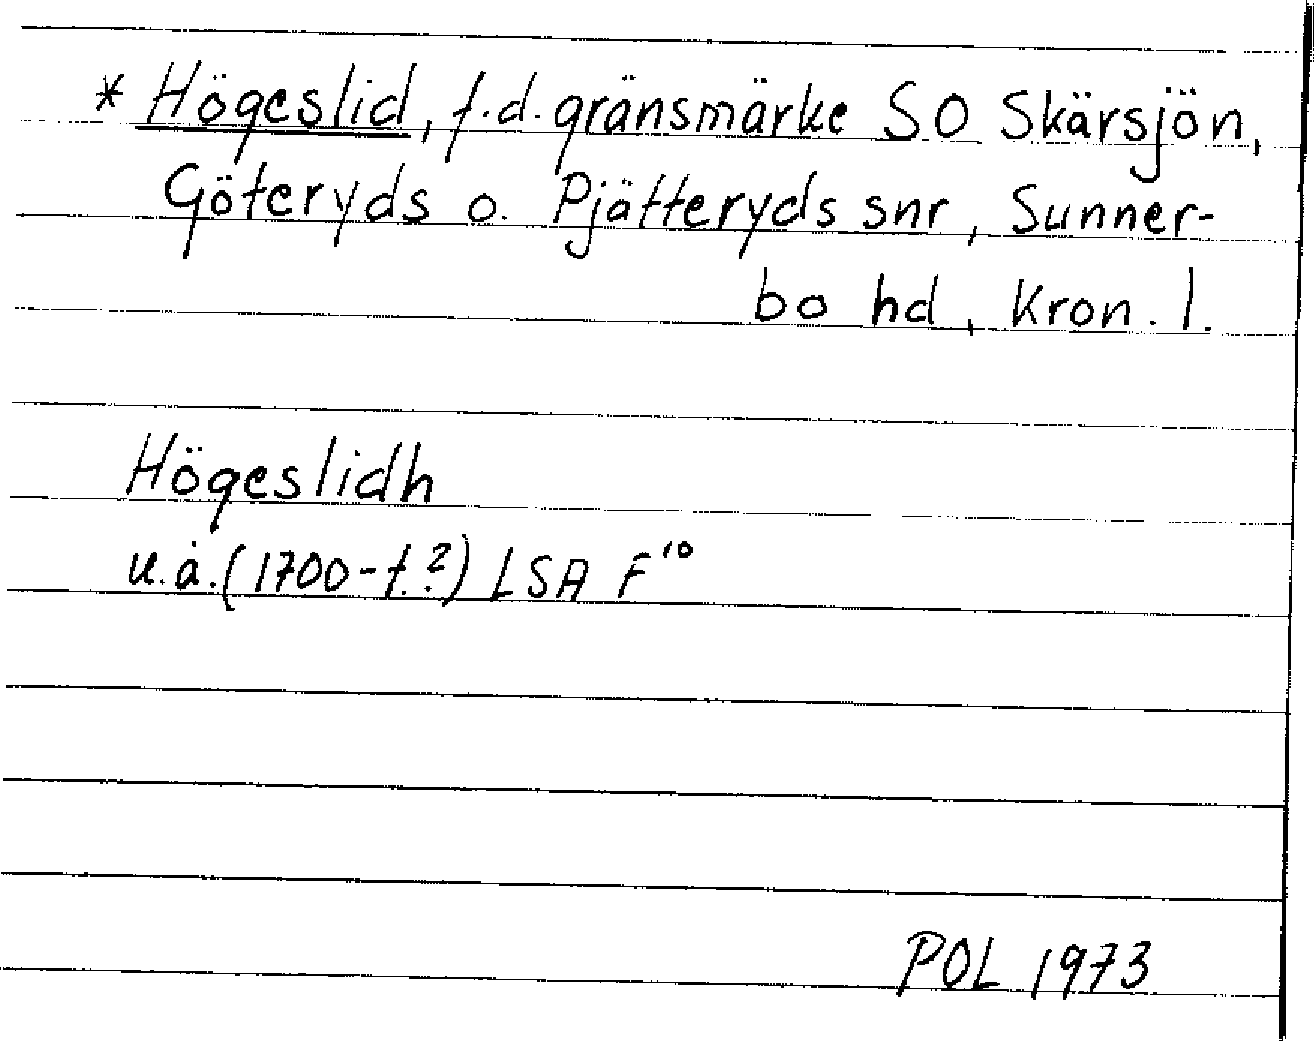 * Högeslid, f.d. gränsmärke SO Skärsjön,
Göteryds o. Pjätteryds snr, Sunner-
bo hd, Kron. l.
Högeslidh
u.å. (1700-t.?) LSA F¹⁰
POL 1973